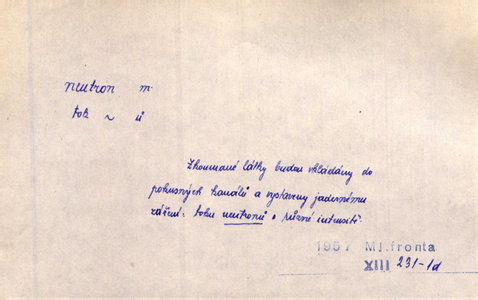 neutron m.
tok ~ ů
Zkoumané látky budou vkládány do
pokusných kanálů a vystaveny jadernému
záření: toku neutronů o různé intensitě.
1957 Ml.fronta
XIII 231-1d